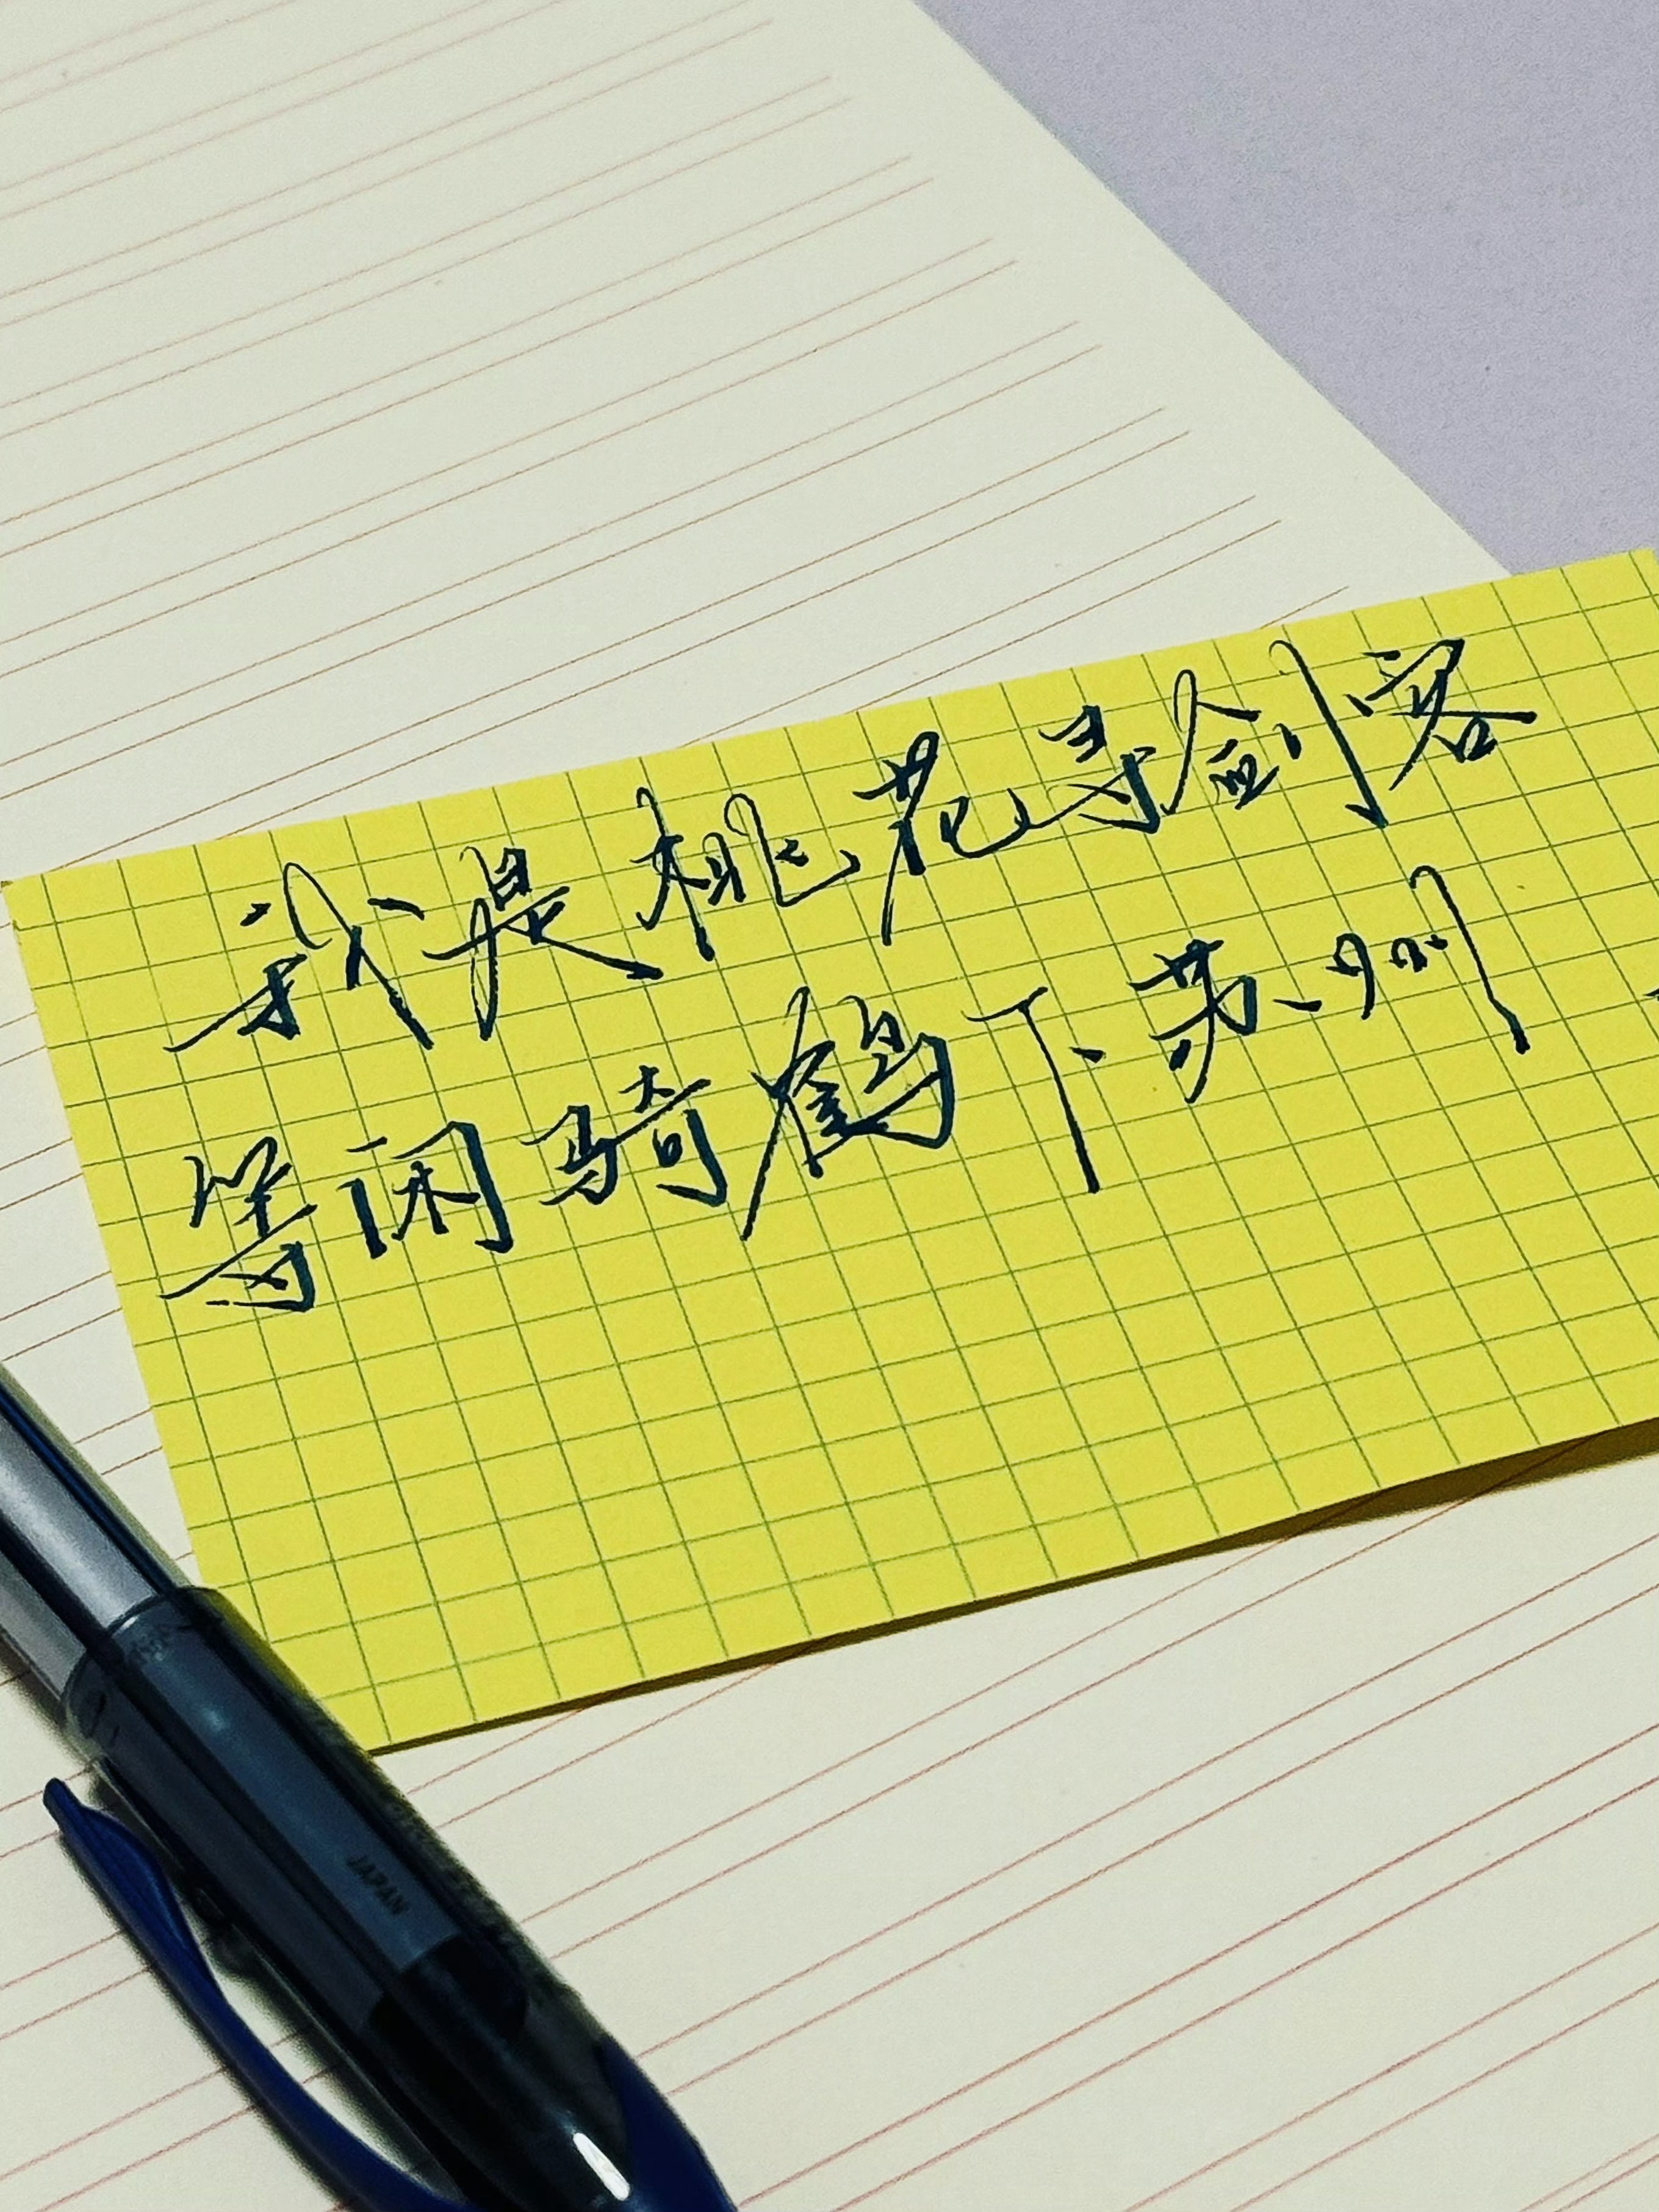 我是桃花寻剑客
等闲骑鹤下苏州
JAPAN